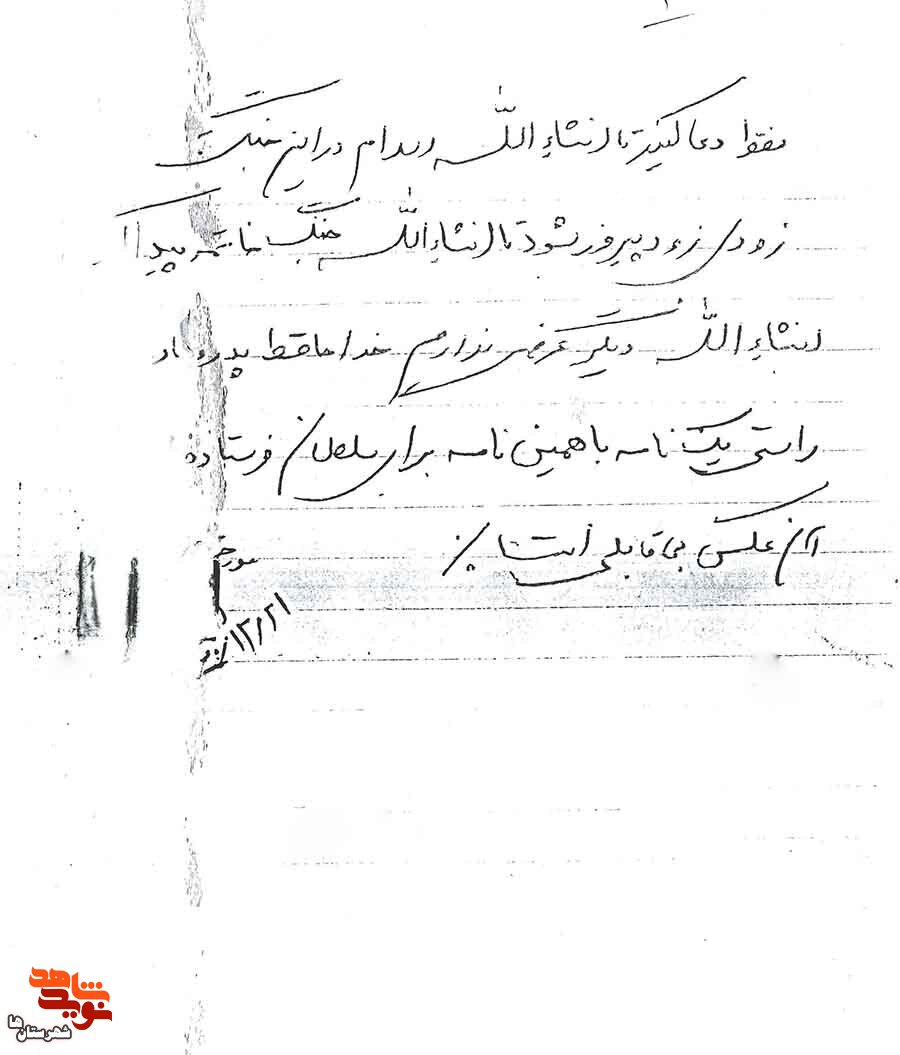 فقط دعا کنید تا انشاء الله در این جنگ
زودی زود پیروز شود تا انشاء الله جنگ خاتمه پیدا
انشاء الله دیگر عرضی ندارم خداحافظ پدر
راستی یک نامه با همین نامه برای سلطان فرستاده
عکس بی‌قابلی
مورخه
۱۲/۲۱
نوید شاهد
شهرستان‌ها